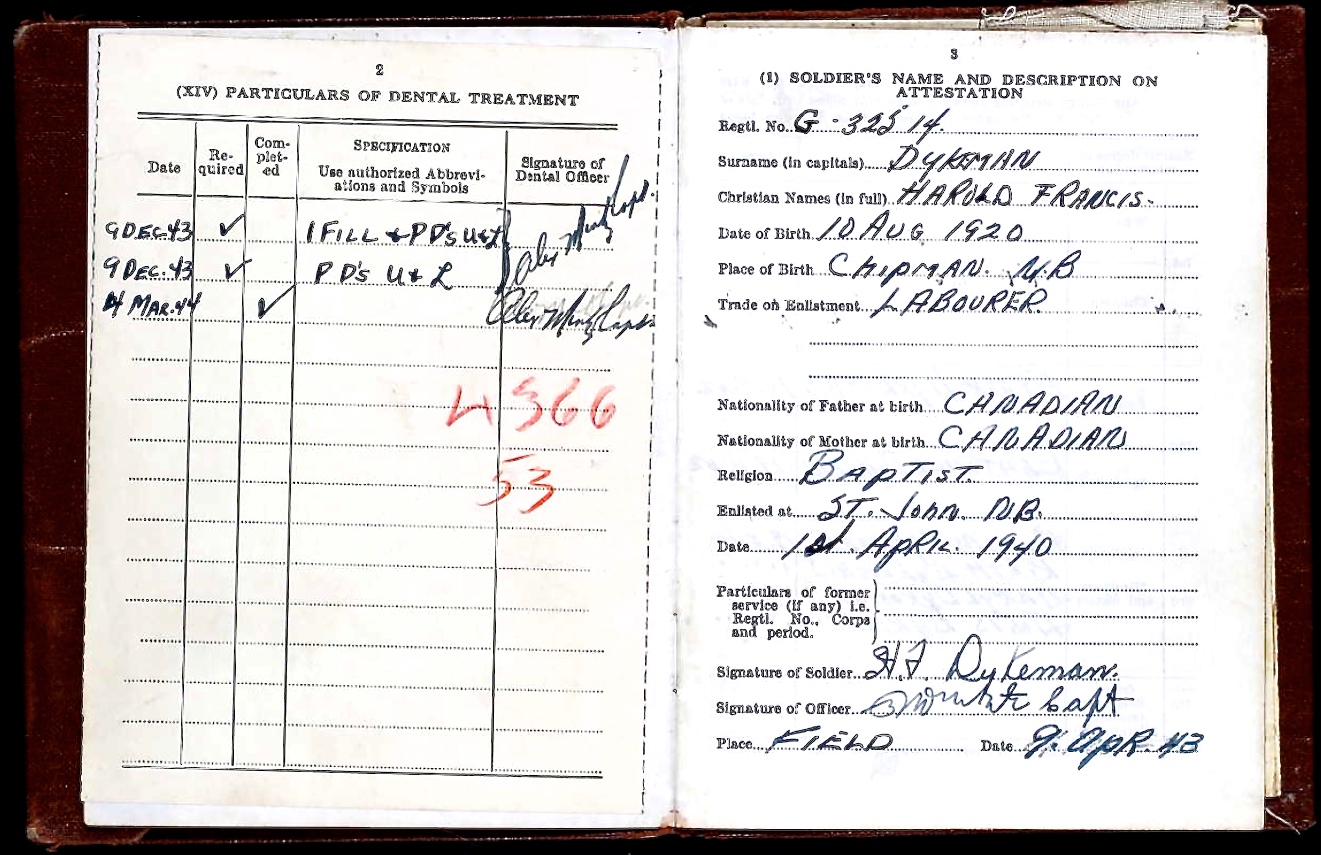 2
(XIV) PARTICULARS OF DENTAL TREATMENT
Date
Re-
quired
Com-
plet-
ed
SPECIFICATION
Use authorized Abbrevi-
ations and Symbols
Signature of
Dental Officer
9 DEC. 43 ✓ 1 FILL & PD's U & L Capt.
9 DEC. 43 ✓ PD's U & L
4 MAR. 44 ✓ Capt
4366
53
3
(I) SOLDIER'S NAME AND DESCRIPTION ON
ATTESTATION
Regtl. No. G-32514.
Surname (in capitals) DYKEMAN
Christian Names (in full) HAROLD FRANCIS.
Date of Birth 10 AUG 1920
Place of Birth CHIPMAN. N.B
Trade on Enlistment LABOURER.
Nationality of Father at birth CANADIAN
Nationality of Mother at birth CANADIAN
Religion BAPTIST.
Enlisted at ST. John. N.B.
Date 1st. APRIL. 1940
Particulars of former
service (if any) i.e.
Regtl. No., Corps
and period.
Signature of Soldier H.F. Dykeman.
Signature of Officer Capt
Place FIELD Date 9. APR. 43